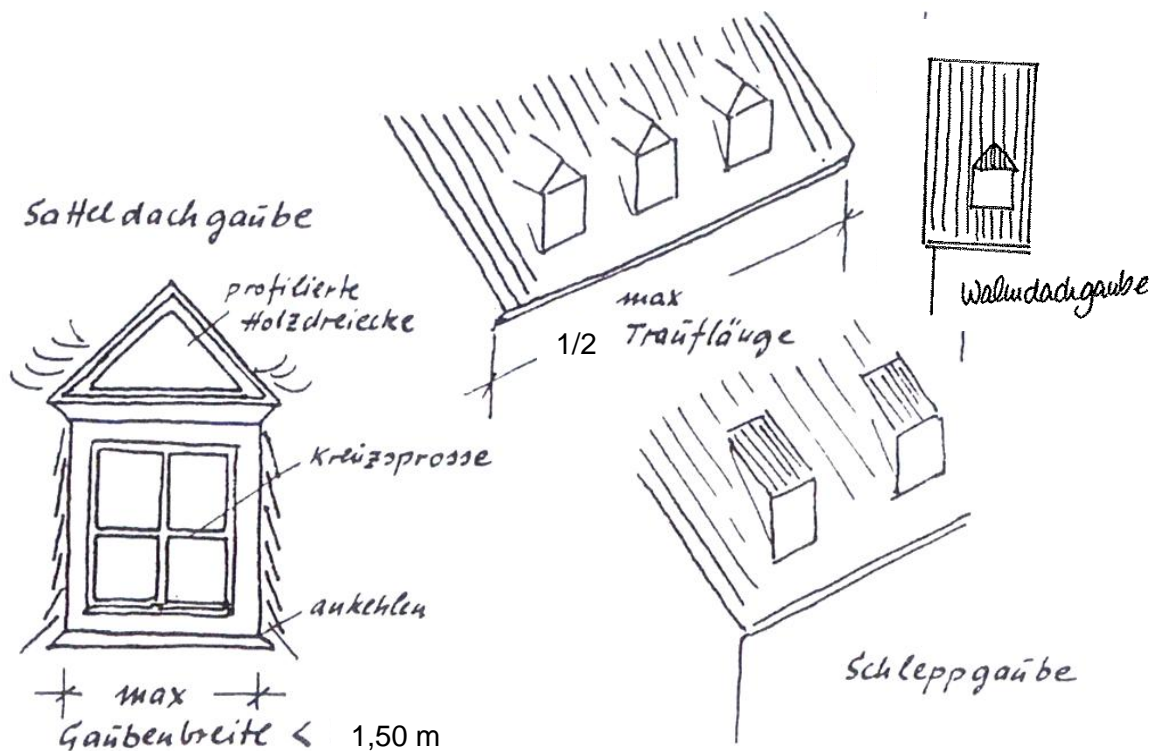 Satteldachgaube
profilierte
Holzdreiecke
Kreuzsprosse
ankehlen
max
Gaubenbreite < 1,50 m
max
1/2 Trauflänge
Walmdachgaube
Schleppgaube